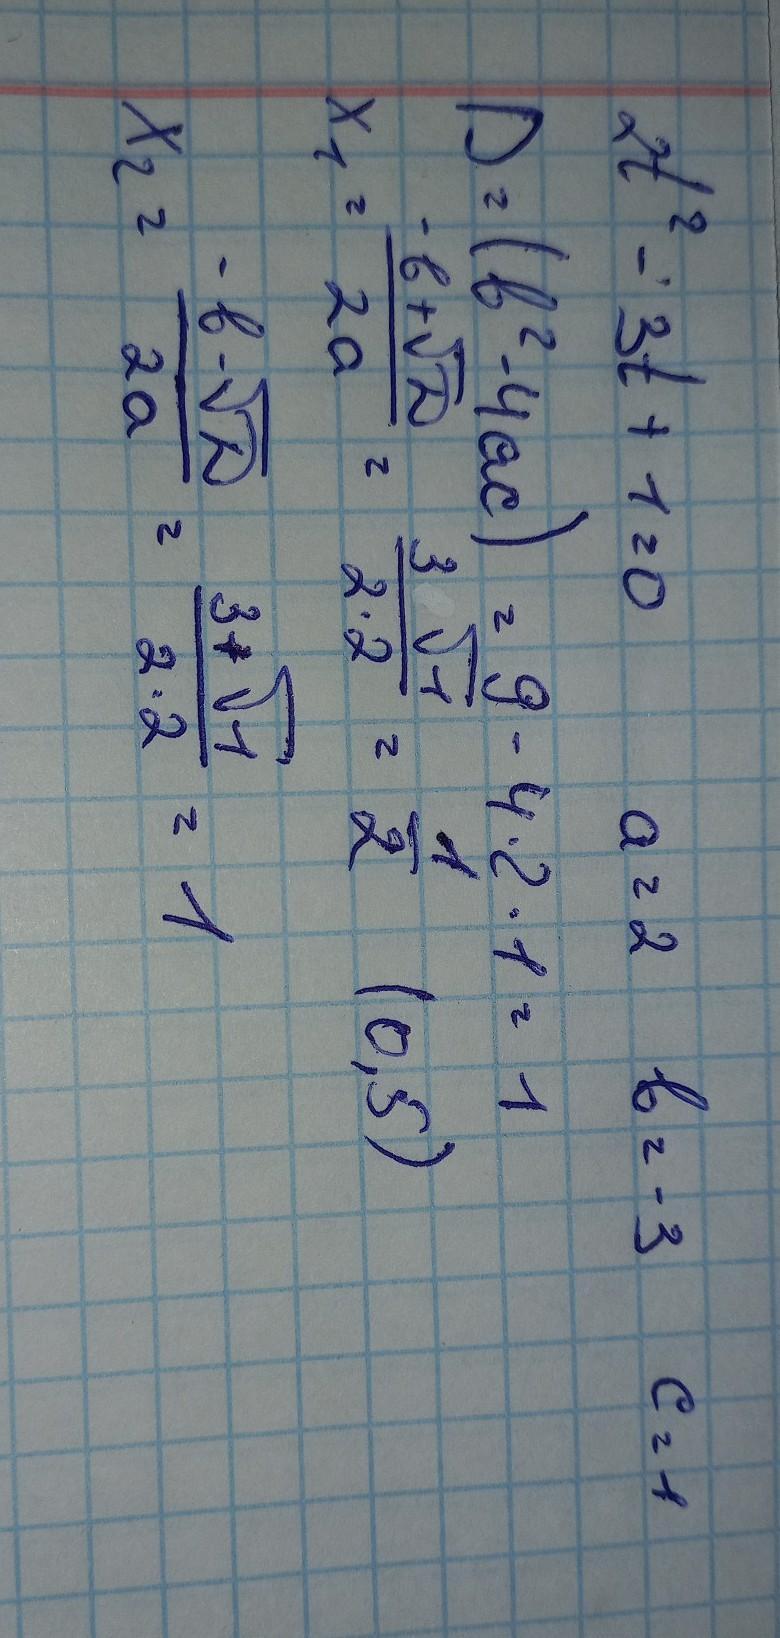 2t² - 3t + 1 = 0 a = 2 b = -3 c = 1
D = (b² - 4ac) = 9 - 4·2·1 = 1
x₁ = (-b+√D)/(2a) = (3 √1)/(2·2) = 1/2 (0,5)
x₂ = (-b-√D)/(2a) = (3+√1)/(2·2) = 1